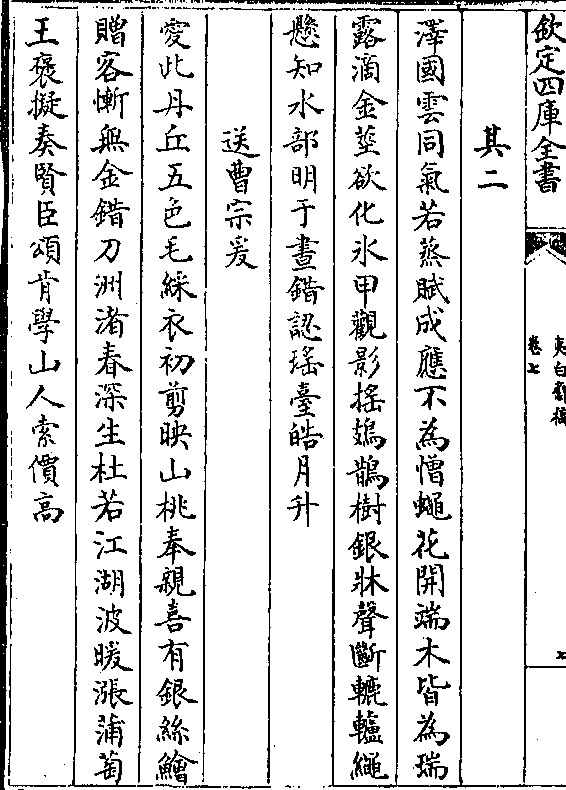 欽定四庫全書
夷白齋稿
卷七
七
其二
澤國雲同氣若蒸賦成應不為憎蠅花開端木皆為瑞
露滴金莖欲化氷甲觀影搖鳷鵲樹銀牀聲斷轆轤繩
懸知水部明于晝錯認瑤臺皓月升
送曹宗爰
愛此丹丘五色毛綵衣初剪映山桃奉親喜有銀絲鱠
贈客慚無金錯刀洲渚春深生杜若江湖波暖漲蒲萄
王褒擬奏賢臣頌肯學山人索價高